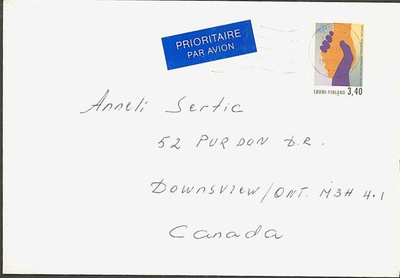 PRIORITAIRE
PAR AVION
SUOMI-FINLAND 3,40
Anneli Sertic
52 PURDON D.R.
DOWNSVIEW/ONT. M3H 4.1
Canada